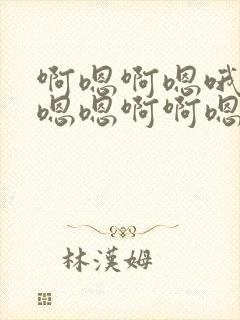 啊嗯啊嗯哦
嗯嗯啊啊嗯
林漢姆